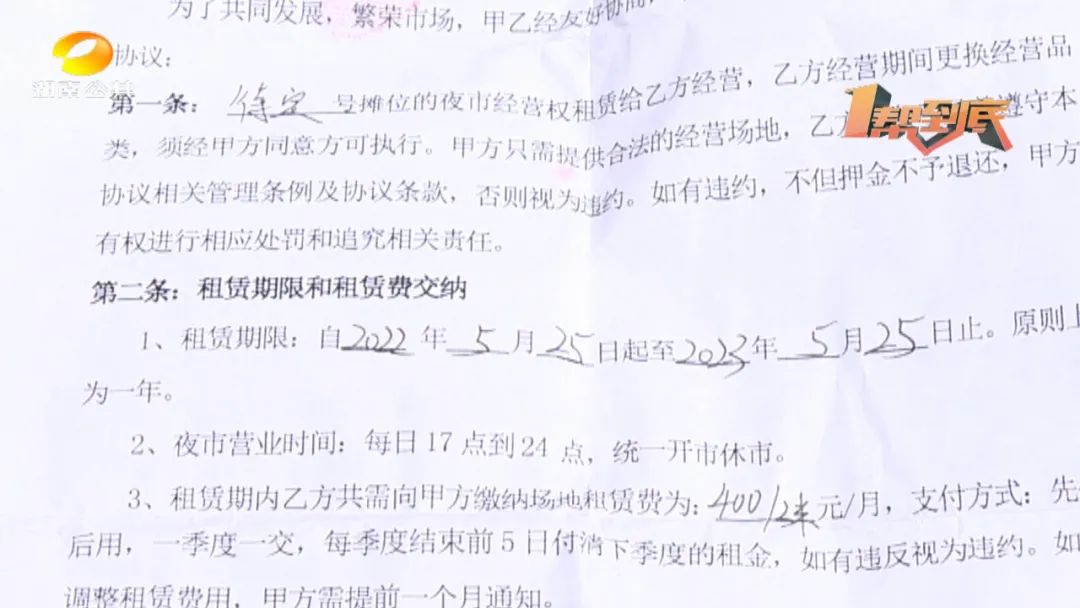 为了共同发展，繁荣市场，甲乙经友好协商，
协议：
湖南公共
1帮到底
第一条：待定 号摊位的夜市经营权租赁给乙方经营，乙方经营期间更换经营品
类，须经甲方同意方可执行。甲方只需提供合法的经营场地，乙方 遵守本
协议相关管理条例及协议条款，否则视为违约。如有违约，不但押金不予退还，甲方
有权进行相应处罚和追究相关责任。
第二条：租赁期限和租赁费交纳
1、租赁期限：自2022年 5月25日起至2023年 5月25日止。原则上
为一年。
2、夜市营业时间：每日17点到24点，统一开市休市。
3、租赁期内乙方共需向甲方缴纳场地租赁费为：400/ 元/月，支付方式：先
后用，一季度一交，每季度结束前5日付清下季度的租金，如有违反视为违约。如
调整租赁费用，甲方需提前一个月通知。